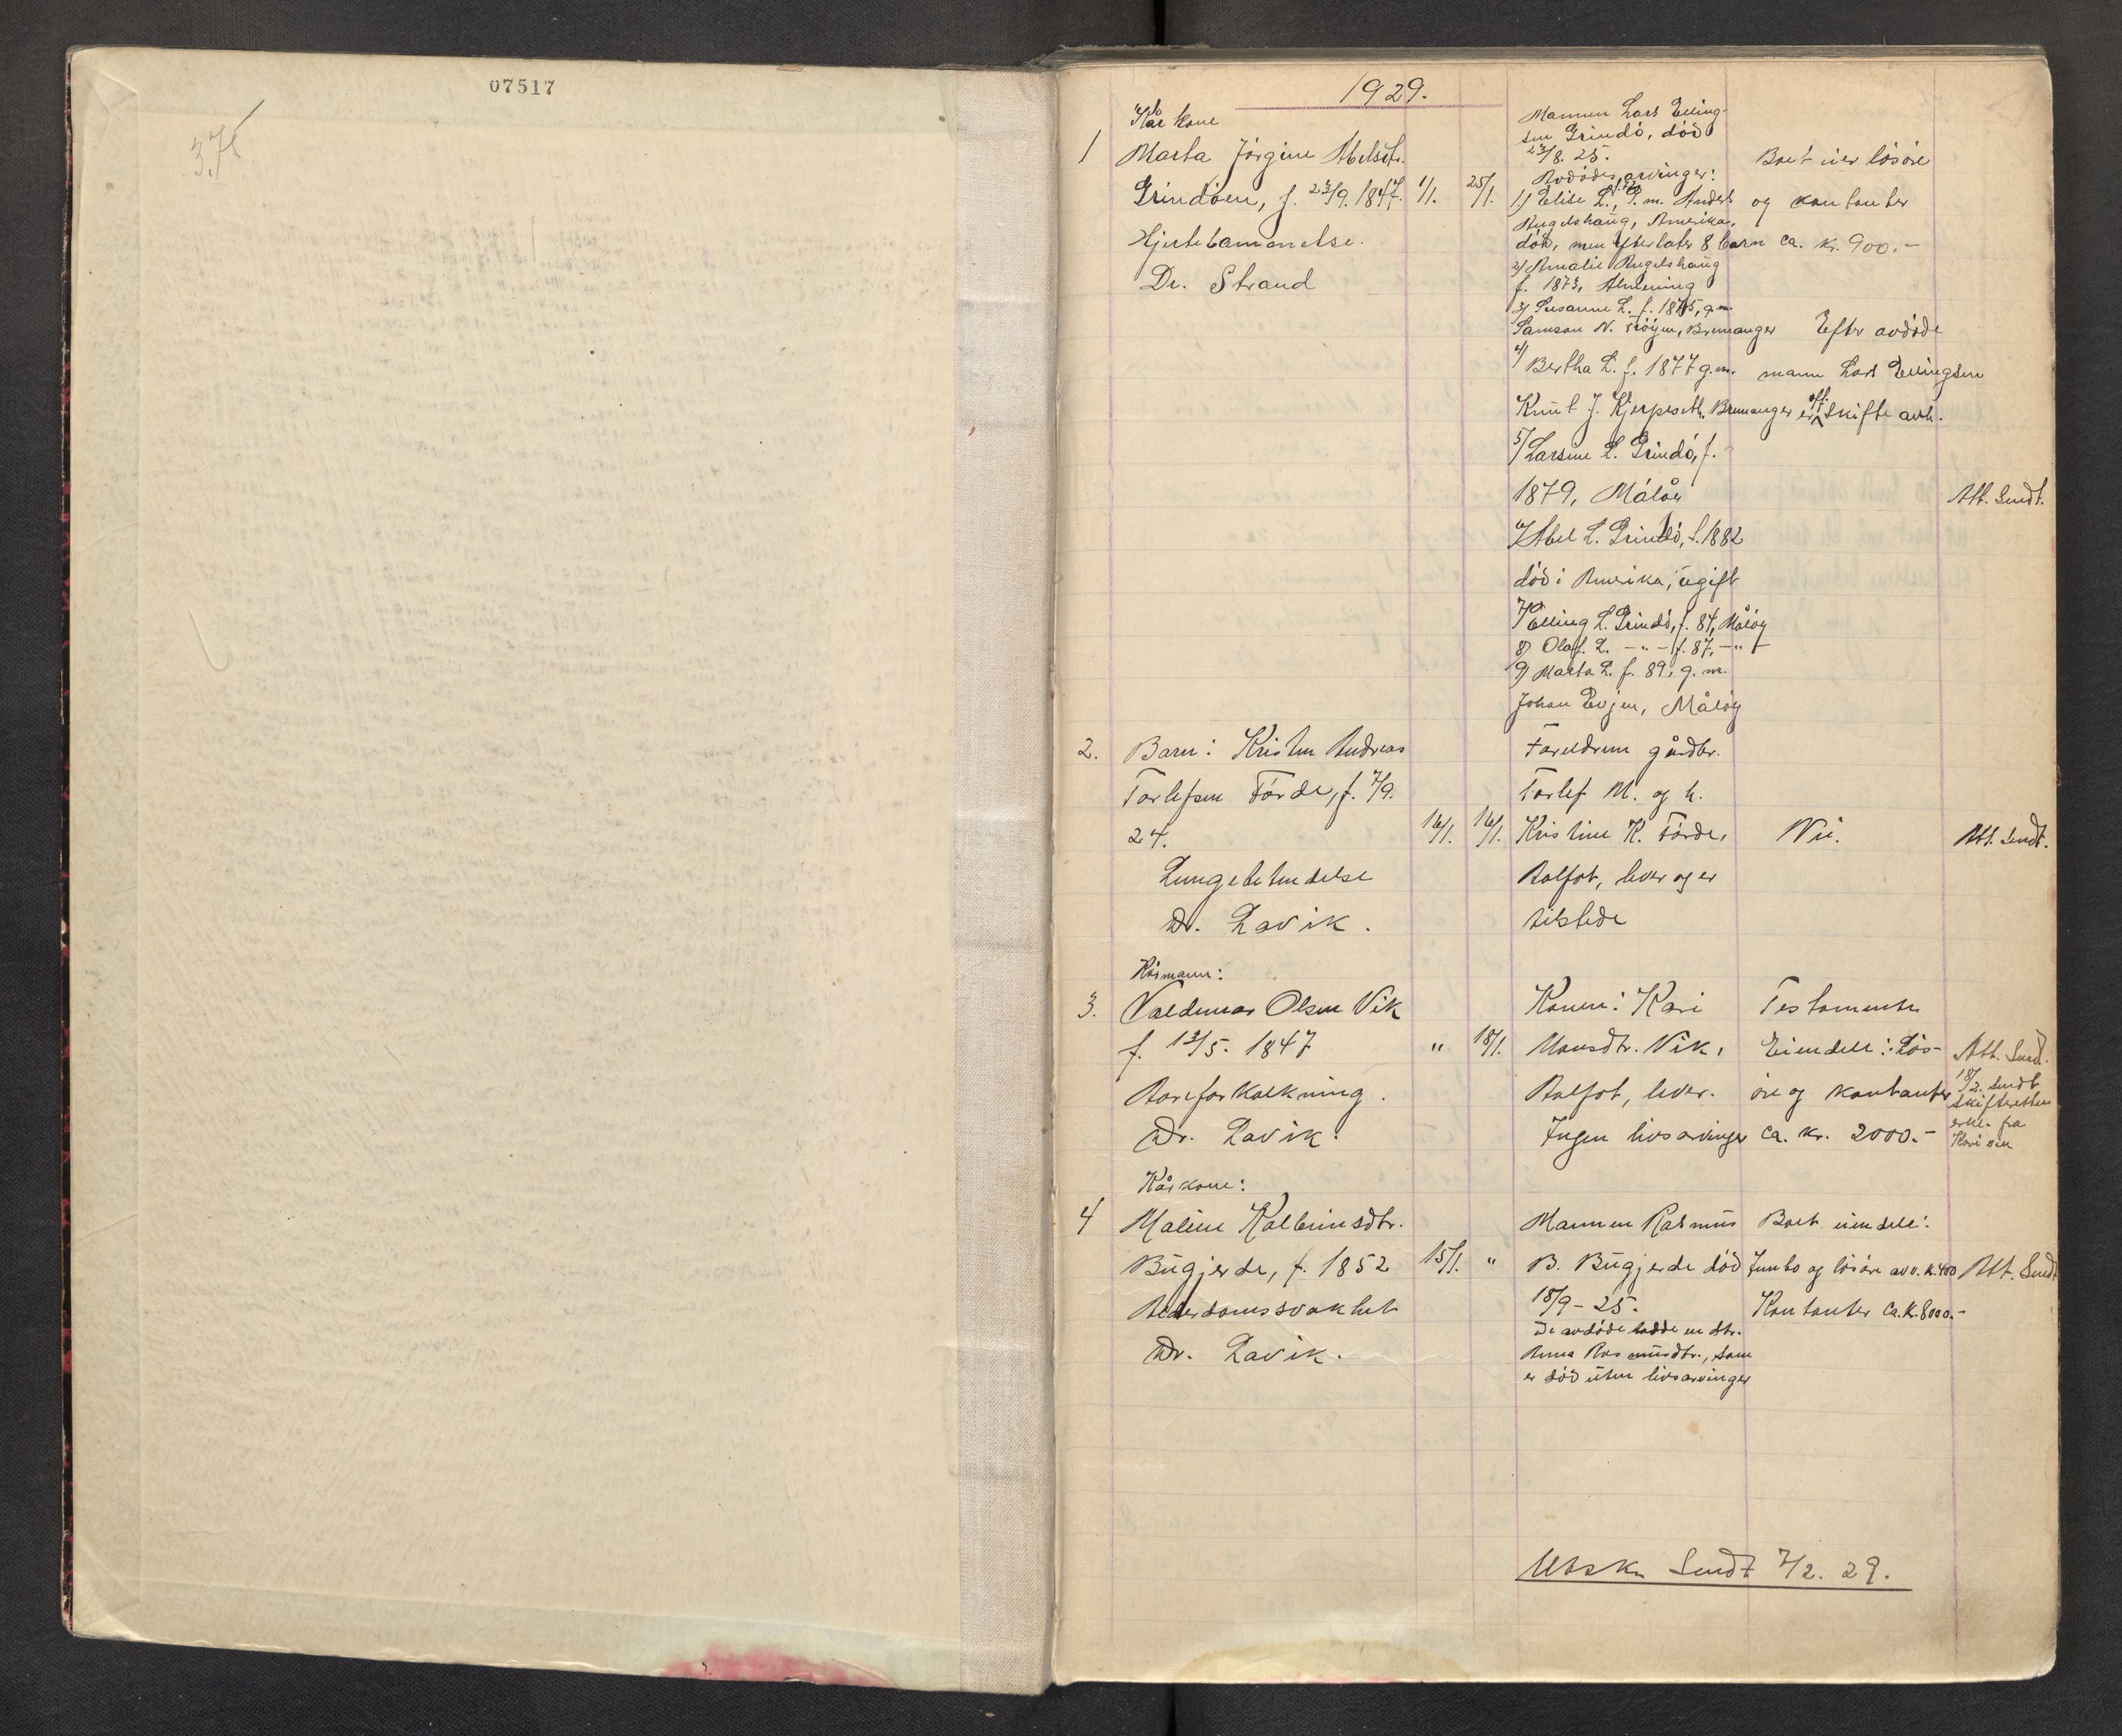 07517
3.75
1929.
Kår kone
1 Marta Jørgine Abelsdtr.
Grindøen, f. 23/9. 1847.
Hjertelammelse.
Dr. Strand
1/1.
25/1.
Mannen Lars Elling-
sen Grindø, død
23/8. 25.
Avdødes arvinger:
1) Elise L., g. m. Anders
Rugelshaug, Amerika,
død, men efterlater 8 barn
2) Amalie Rugelshaug
f. 1873, Almenning
3) Susanne L. f. 1875, g.m.
Samson N. Frøyen, Bremanger
4) Bertha L. f. 1877 g.m.
Knut J. Kjerpeseth, Bremanger
5) Larsine L. Grindø, f.
1879, Måløy
6) Abel L. Grindø, f. 1882
død i Amerika, ugift
7) Elling L. Grindø, f. 84, Måløy
8) Olaf L. - " - f. 87, - " -
9) Marta L. f. 89, g. m.
Johan Evjen, Måløy
Boet eier løsøre
og kontanter
ca. kr. 900.-
Efter avdøde
mann Lars Ellingsen
er off. skifte avh.
Att. sendt.
2. Barn: Kristen Andreas
Torlefsen Førde, f. 7/9.
24.
Lungebetendelse
Dr. Lavik.
16/1.
16/1.
Foreldrene gårdbr.
Torlef M. og h.
Kristine K. Førde,
Ålfot, lever og er
tilstede
Nei.
Att. sendt.
Kårmann:
3. Valdemar Olsen Vik
f. 13/5. 1847
Åreforkalkning.
Dr. Lavik.
"
18/1.
Konen: Kari
Monsdtr. Vik,
Ålfot, lever.
Ingen livsarvinger
Testamente
Eiendele: Løs-
øre og kontanter
ca. kr. 2000.-
Att. sendt.
18/2. sendt
skifteretten
erkl. fra
Kari Vik
Kårkone:
4 Maline Kolbeinsdtr.
Bugjerde, f. 1852
Alderdomssvakhet
Dr. Lavik.
15/1.
"
Mannen Rasmus
B. Bugjerde død
18/9 - 25.
De avdøde hadde en dtr.
Anna Rasmusdtr., som
er død uten livsarvinger
Boets eiendele:
Innbo og løsøre av v. k. 400
Kontanter ca. k. 8000.-
Att. sendt
Utskr. sendt 7/2. 29.